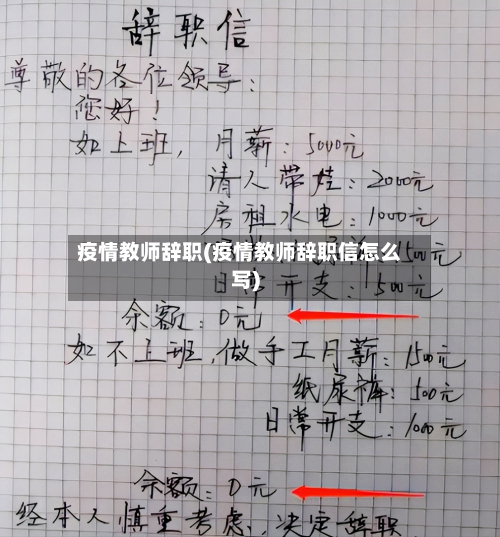 辞职信
尊敬的各位领导：
您好！
如上班，月薪：5000元
请人带娃：2000元
房租水电：1000元
疫情教师辞职(疫情教师辞职信怎么
写)
1500元
日 开支：500元
余额：0元
如不上班，做手工月薪：1500元
纸尿裤：500元
日常开支：1000元
余额：0元
经本人慎重考虑，决定辞职